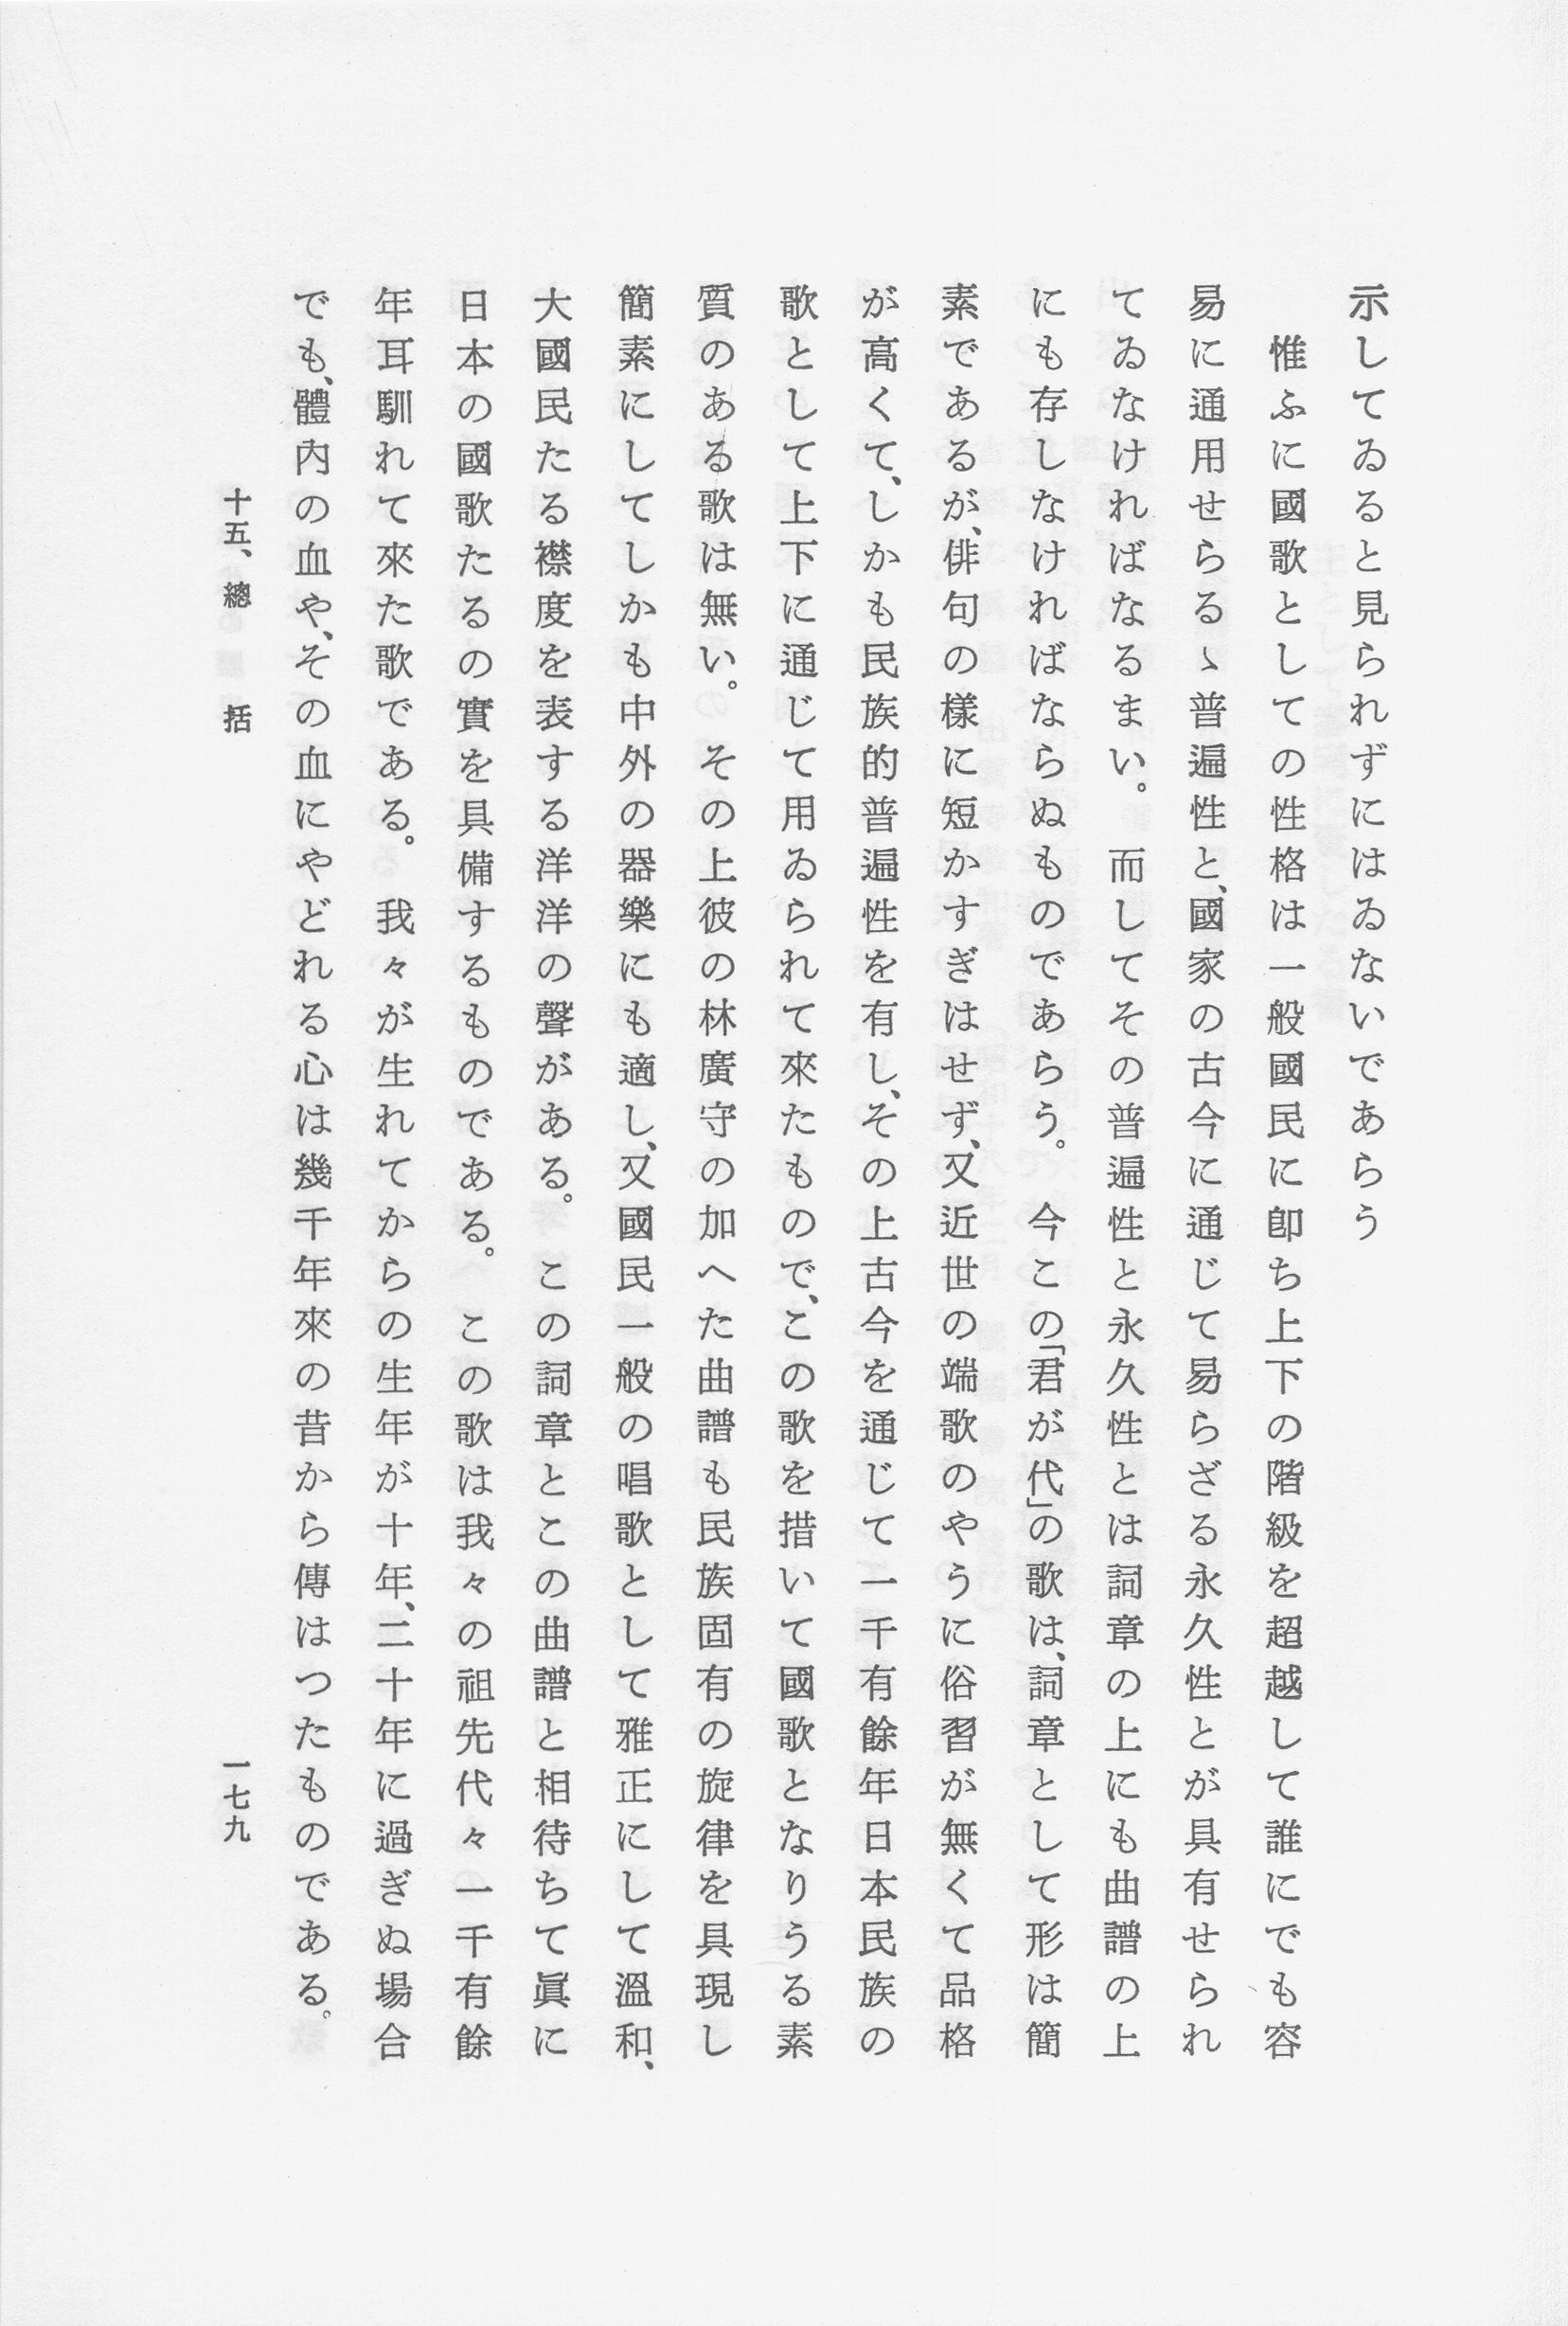 示してゐると見られずにはゐないであらう
惟ふに國歌としての性格は一般國民に卽ち上下の階級を超越して誰にでも容
易に通用せらるゝ普遍性と、國家の古今に通じて易らざる永久性とが具有せられ
てゐなければなるまい。而してその普遍性と永久性とは詞章の上にも曲譜の上
にも存しなければならぬものであらう。今この「君が代」の歌は、詞章として形は簡
素であるが、俳句の樣に短かすぎはせず、又近世の端歌のやうに俗習が無くて品格
が高くて、しかも民族的普遍性を有し、その上古今を通じて一千有餘年日本民族の
歌として上下に通じて用ゐられて來たもので、この歌を措いて國歌となりうる素
質のある歌は無い。その上彼の林廣守の加へた曲譜も民族固有の旋律を具現し
簡素にしてしかも中外の器樂にも適し、又國民一般の唱歌として雅正にして溫和、
大國民たる襟度を表する洋洋の聲がある。この詞章とこの曲譜と相待ちて眞に
日本の國歌たるの實を具備するものである。この歌は我々の祖先代々一千有餘
年耳馴れて來た歌である。我々が生れてからの生年が十年、二十年に過ぎぬ場合
でも、體內の血や、その血にやどれる心は幾千年來の昔から傳はつたものである。
十五、總括
一七九